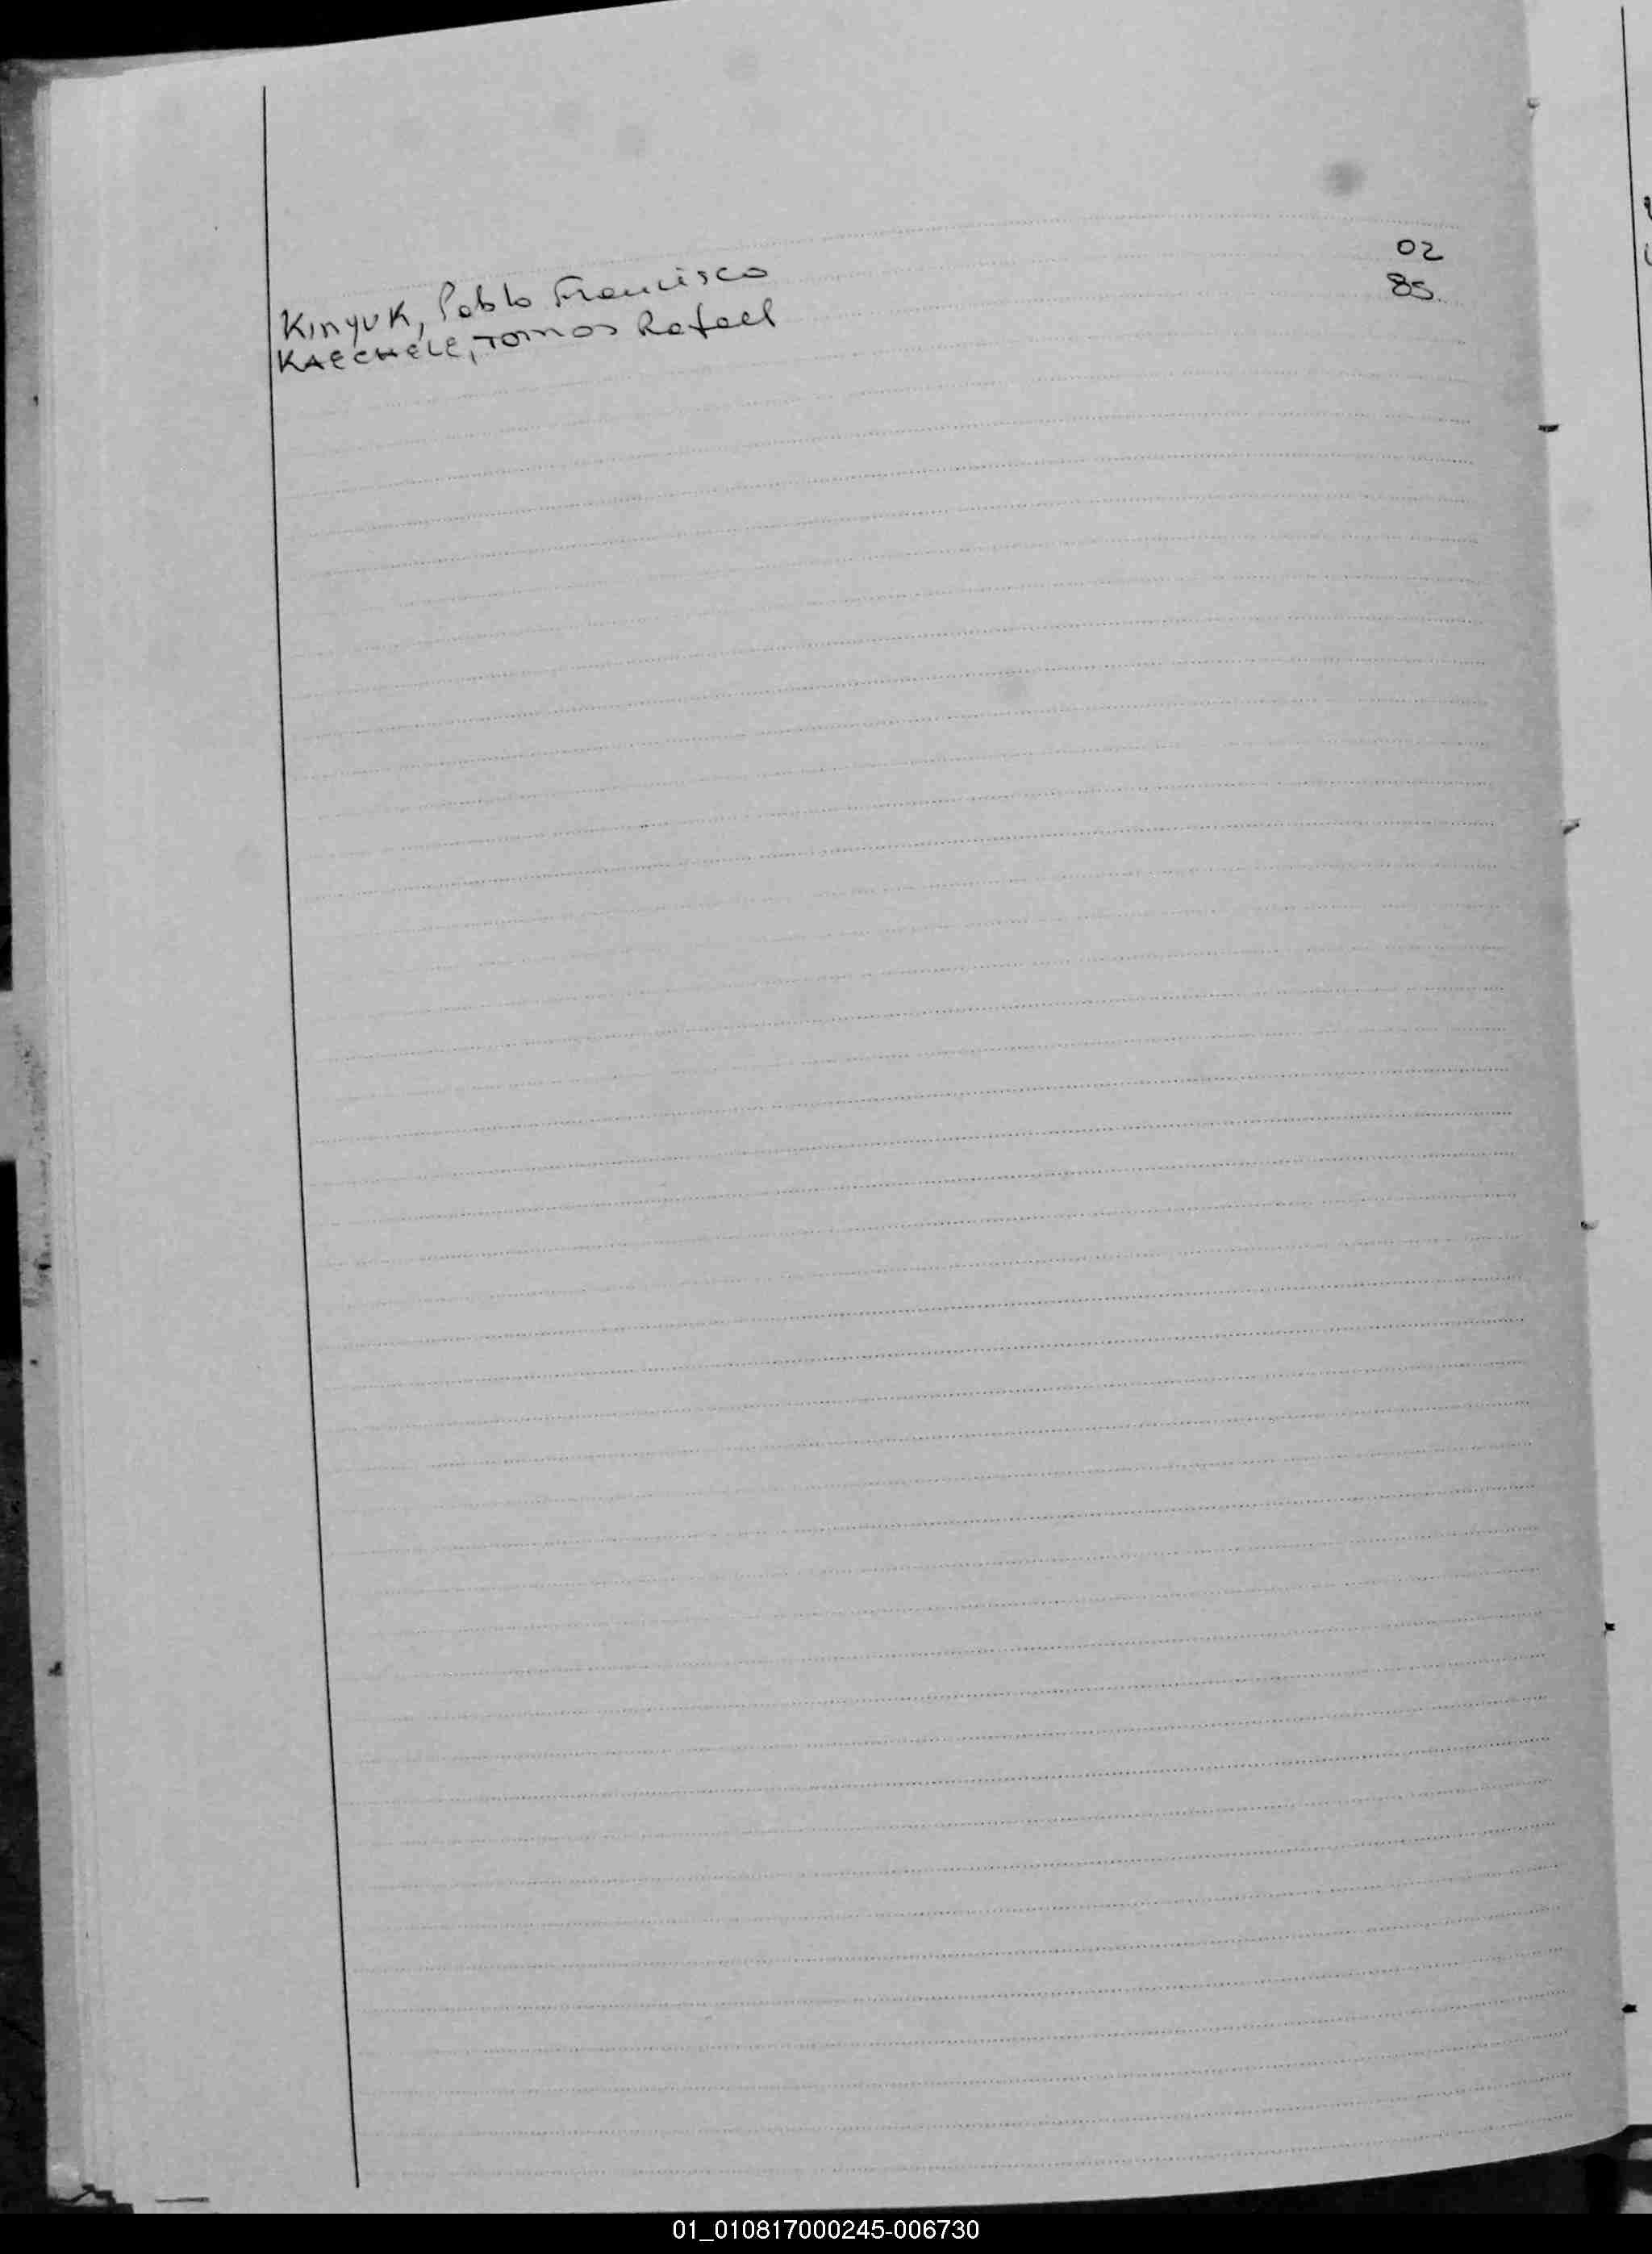 KINYUK, Pablo Francisco 02
KAECHELE, TOMAS Rafael 85
01_010817000245-006730